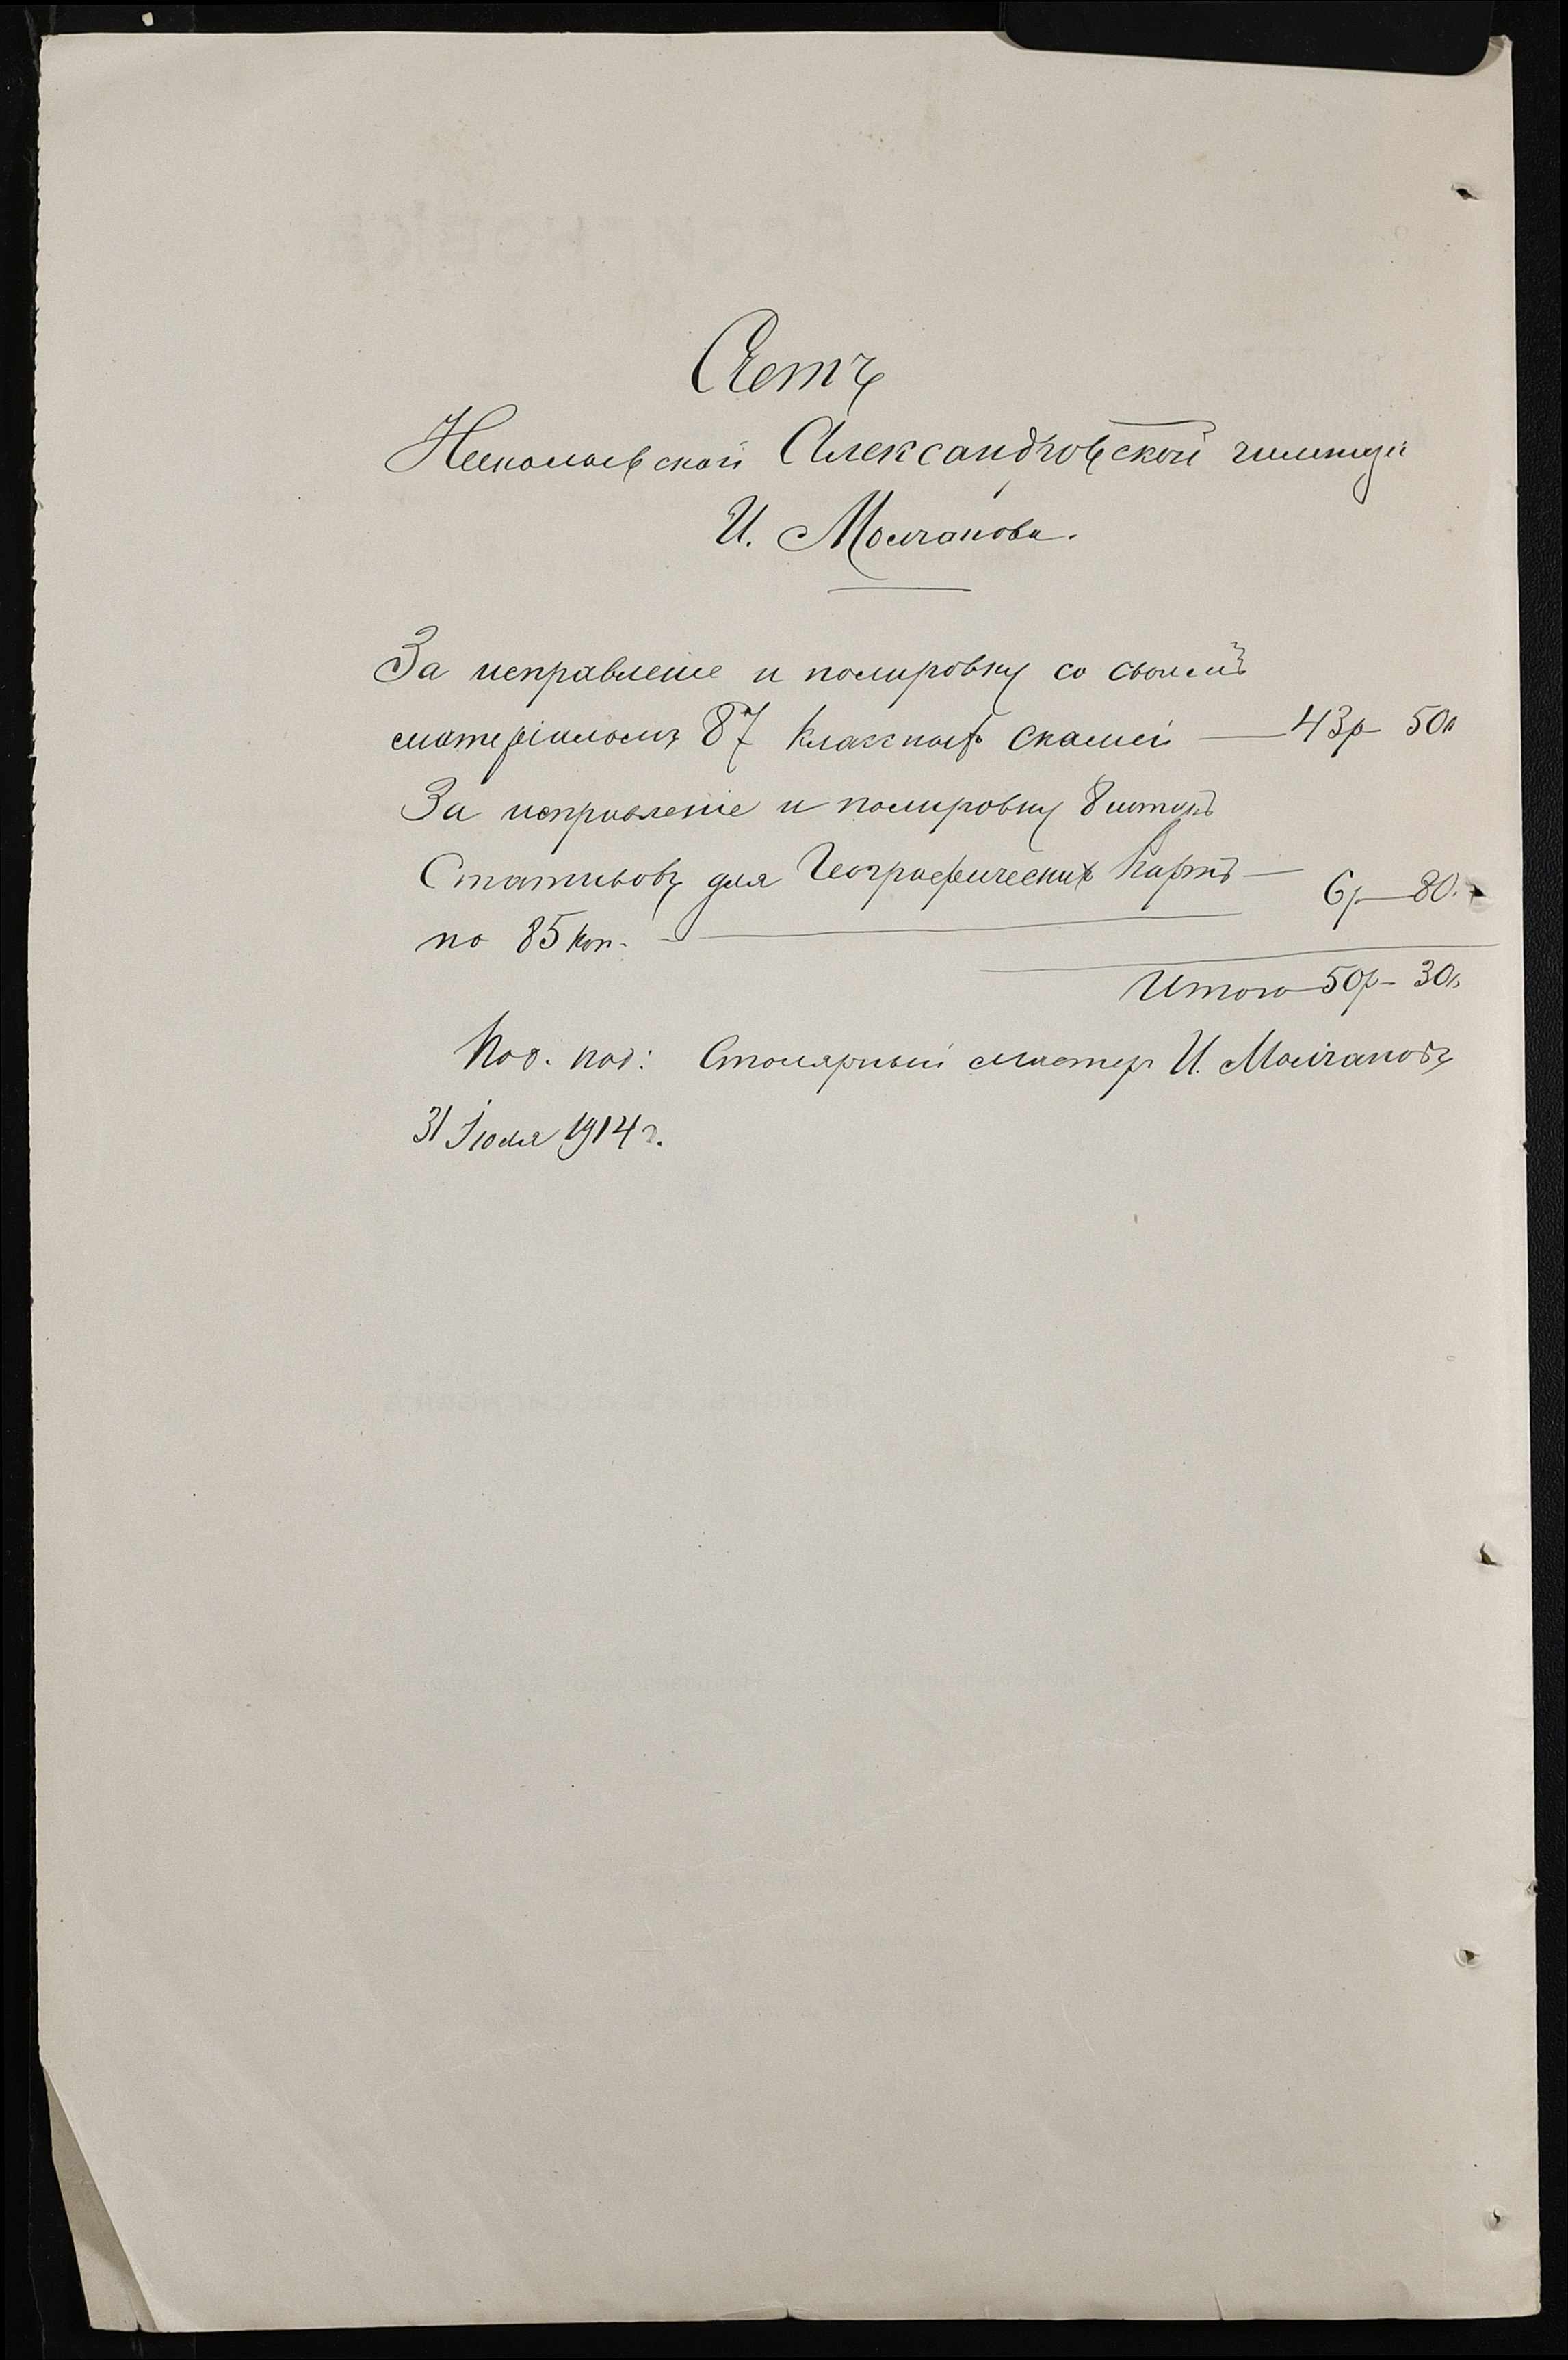 Счетъ
Николаевской Александровской гимназіи
И. Молчанова.
За исправленіе и полировку со своимъ
матеріаломъ 87 классныхъ скамей — 43р 50к
За исправленіе и полировку 8 штукъ
Стативовъ для Географическихъ Картъ —
по 85 коп. — 6р — 80к
Итого 50р — 30к
Под. под: Столярный мастеръ И. Молчановъ
31 Іюля 1914 г.